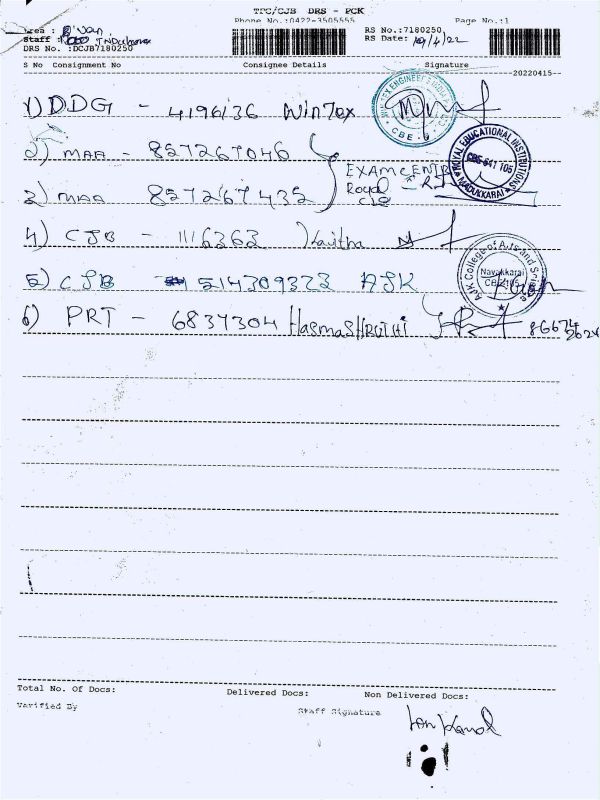 TPC/CJB DRS - PCK
Phone No.:0422-3505555 Page No.:1
Area :
Staff :
DRS No. :DCJB7180250
RS No.:7180250
RS Date: /4/22
S No Consignment No Consignee Details Signature
--20220415--
1) DDG - 4196136 Wintex
2) MAA - 827267046
EXAM CENTR
Royal
CJB
3) MAA 827267435
ROYAL EDUCATIONAL INSTITUTIONS
CBE-641 105
MADUKKARAI
4) CJB - 1116363 Kavitha
5) CJB 514309323 AJK
AJK College of Arts and Science
Navakkarai
CBE-105
6) PRT - 6837304 HASMASHRUTHI
Total No. Of Docs: Delivered Docs: Non Delivered Docs:
Verified By Staff Signature